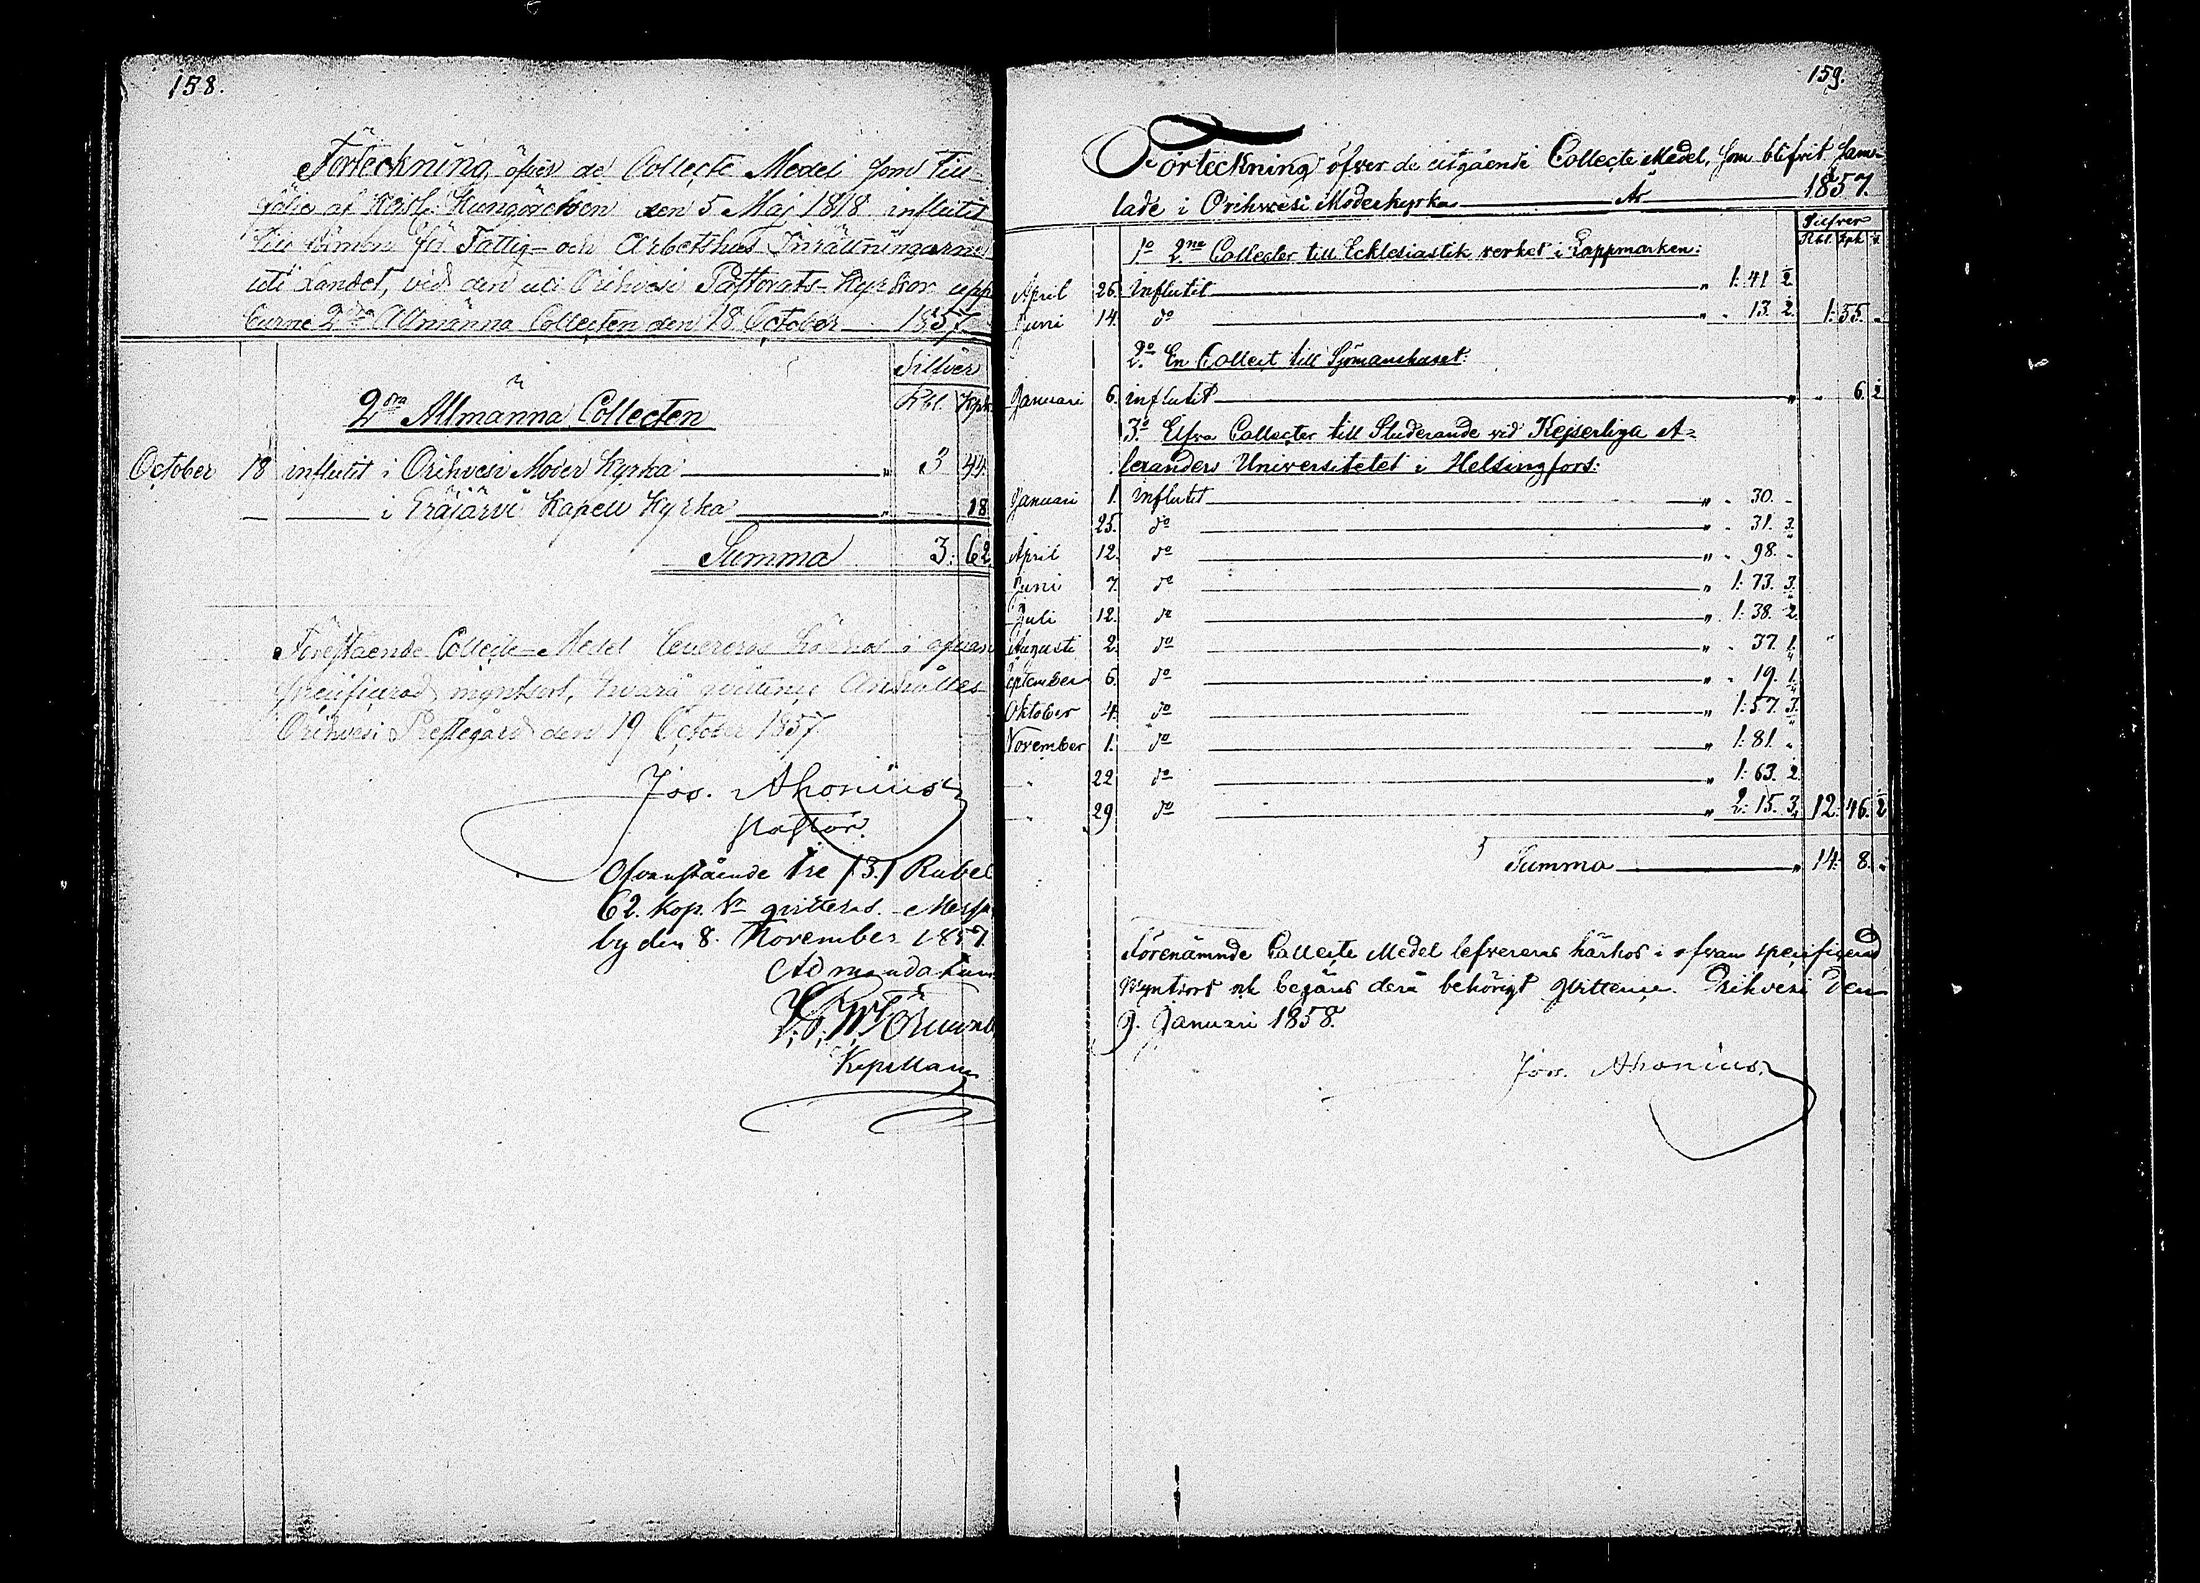 158.
Förteckning öfver de Collecte Medel som till-
följe af Keis. Kungörelsen den 5 Maj 1818 influtit
till förmån för Fattig- och Arbetshus Inrättningarne
uti Landet, vid den uti Orihvesi Pastorats-Kyrkor upp
burne 2dra Allmänna Collecten den 18 October 1857
Silfver
Rbl. Kpk
2dra Allmänna Collecten
October 18 influtit i Orihvesi Moder Kyrka " 3 44
i Eräjärvi Kapell Kyrka " 18
Summa 3: 62
Förestående Collecte-Medel levereras härhos i ofvan
specificerad myntsort, hvarå qvittence anhålles
Orihvesi Prestegård den 19 October 1857
Jos. Ahonius
Pastor.
Ofvanstående tre /3./ Rubel
62. Kop. Sr qvitteras. Messu
by den 8. November 1857.
Ad mandatum
Kapellan
159.
Förteckning öfver de utgående Collecte Medel, som blifvit sam-
lade i Orihvesi Moderkyrka År 1857.
Silfver
Rbl. Kpk
1o 2ne Collecter till Ecklesiastik verket i Lappmarken:
April 26. influtit " 1: 41 1/2
Juni 14. do " " 13. 1/2 1: 55. "
2o En Collect till Sjömanshuset.
Januari 6. influtit " " 6. 1/2
3o Elfva Collecter till Studerande vid Kejserliga A-
lexanders Universitetet i Helsingfors:
Januari 1. influtit " " 30. "
25. do " " 31. 3/4
April 12. do " " 98. "
Juni 7. do " 1: 73. 3/4
Juli 12. do " 1: 38. 1/2
Augusti 2. do " " 37. 1/4
September 6. do " " 19. 1/4
Oktober 4. do " 1: 57. 3/4
November 1. do " 1: 81. "
" 22 do " 1: 63. 1/2
" 29 do " 2: 15. 3/4 12: 46. 1/2
Summa " 14: 8. "
Förenämnde Collecte Medel lefvereras härhos i ofvan specificerad
Myntsort och begäres derå behörigt qvittence. Orihvesi den
9. Januari 1858.
Jos. Ahonius.